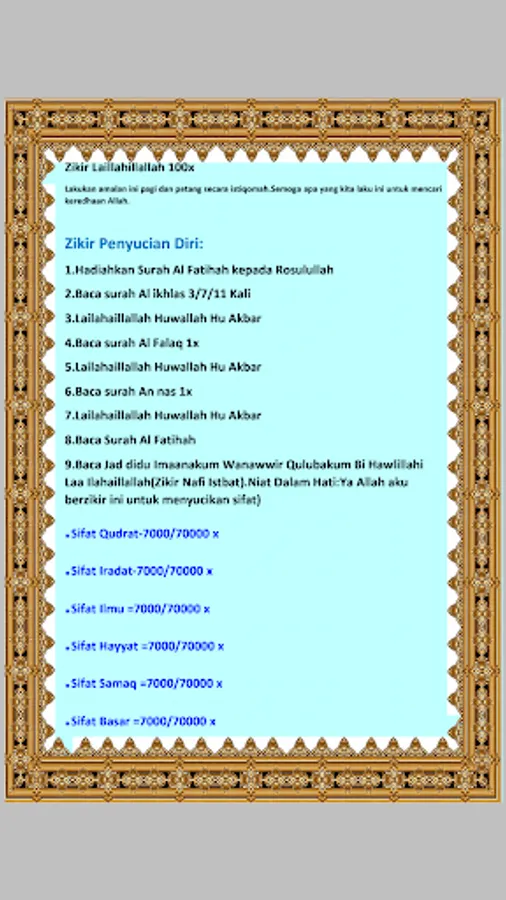 Zikir Laillahillallah 100x
Lakukan amalan ini pagi dan petang secara istiqomah.Semoga apa yang kita laku ini untuk mencari
keredhaan Allah.
Zikir Penyucian Diri:
1.Hadiahkan Surah Al Fatihah kepada Rosulullah
2.Baca surah Al ikhlas 3/7/11 Kali
3.Lailahaillallah Huwallah Hu Akbar
4.Baca surah Al Falaq 1x
5.Lailahaillallah Huwallah Hu Akbar
6.Baca surah An nas 1x
7.Lailahaillallah Huwallah Hu Akbar
8.Baca Surah Al Fatihah
9.Baca Jad didu Imaanakum Wanawwir Qulubakum Bi Hawlillahi
Laa Ilahaillallah(Zikir Nafi Istbat).Niat Dalam Hati:Ya Allah aku
berzikir ini untuk menyucikan sifat)
.Sifat Qudrat-7000/70000 x
.Sifat Iradat-7000/70000 x
.Sifat Ilmu =7000/70000 x
.Sifat Hayyat =7000/70000 x
.Sifat Samaq =7000/70000 x
.Sifat Basar =7000/70000 x